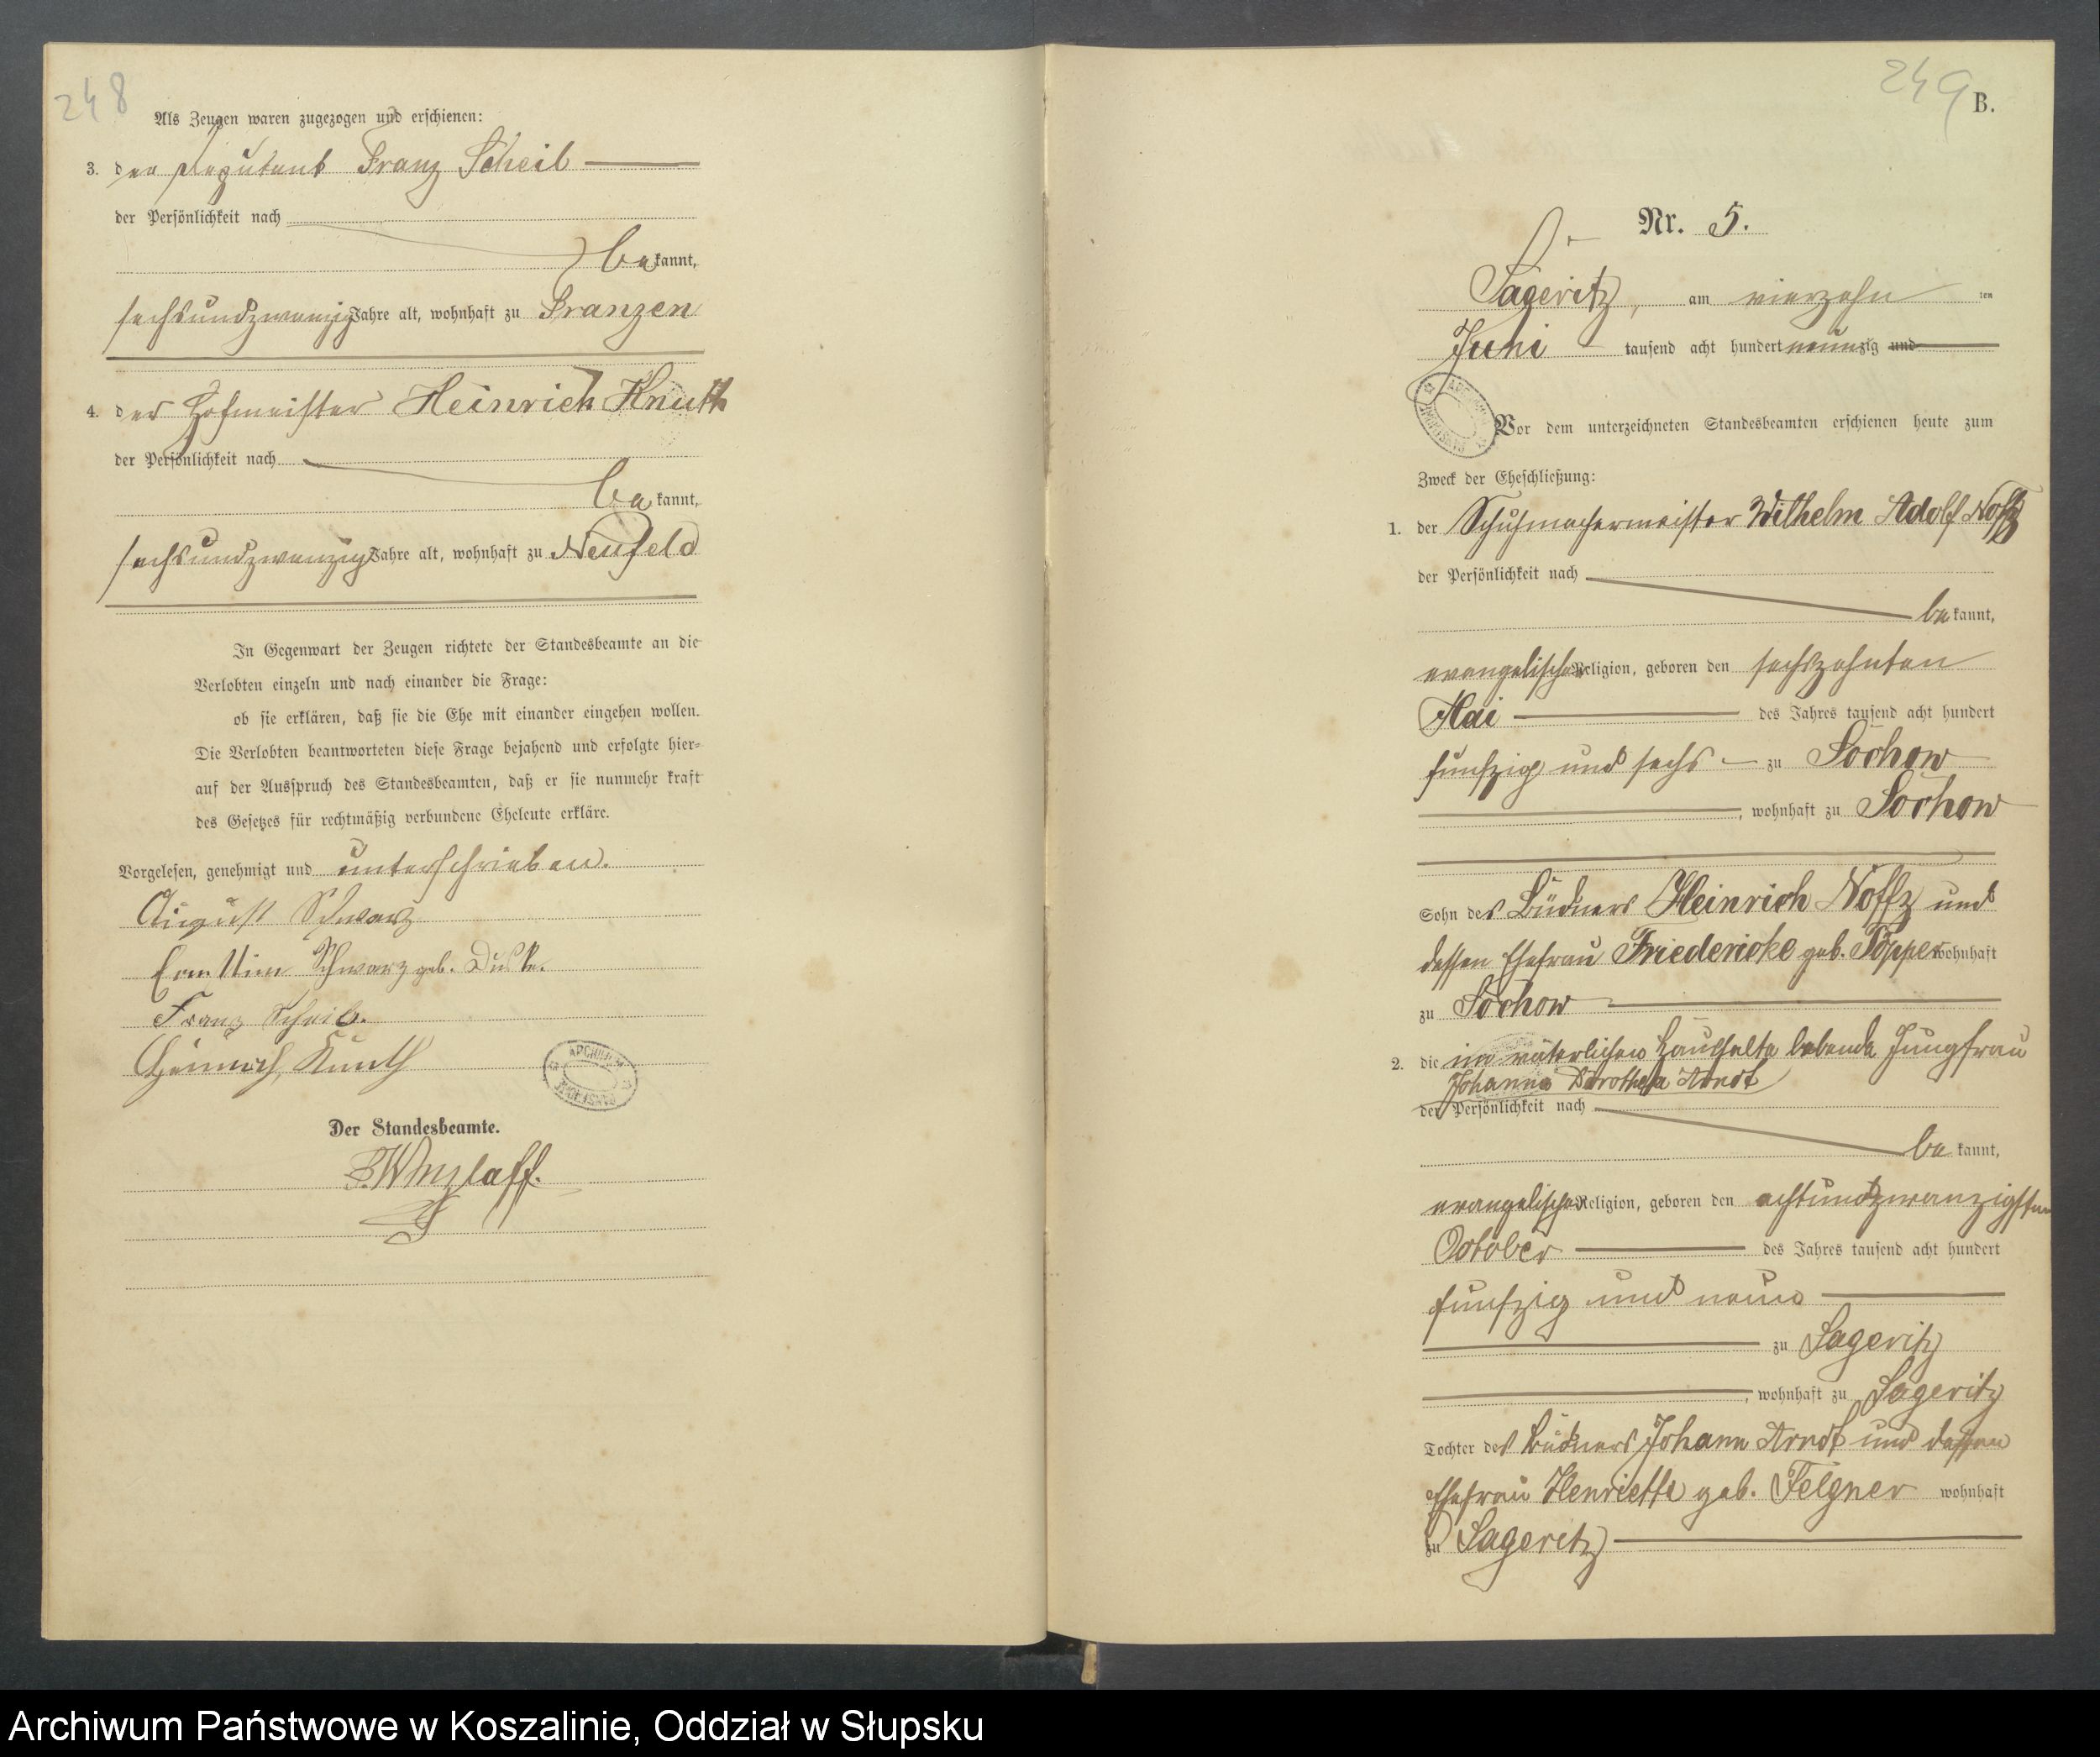 248
Als Zeugen waren zugezogen und erschienen:
3. der Deputant Franz Scheil
der Persönlichkeit nach
bekannt,
sechsundzwanzig Jahre alt, wohnhaft zu Franzen
4. der Hofmeister Heinrich Knuth
der Persönlichkeit nach
bekannt,
sechsundzwanzig Jahre alt, wohnhaft zu Neufeld
In Gegenwart der Zeugen richtete der Standesbeamte an die
Verlobten einzeln und nach einander die Frage:
ob sie erklären, daß sie die Ehe mit einander eingehen wollen.
Die Verlobten beantworteten diese Frage bejahend und erfolgte hier-
auf der Ausspruch des Standesbeamten, daß er sie nunmehr kraft
des Gesetzes für rechtmäßig verbundene Eheleute erkläre.
Vorgelesen, genehmigt und unterschrieben.
August Schwarz
Schwarz geb.
Franz Scheil.
Heinrich Knuth
Der Standesbeamte.
249
B.
Nr. 5.
Sageritz, am vierzehn ten
Juni tausend acht hundert neunzig und
Vor dem unterzeichneten Standesbeamten erschienen heute zum
Zweck der Eheschließung:
1. der Schuhmachermeister Wilhelm Adolf Noffz
der Persönlichkeit nach
bekannt,
evangelischer Religion, geboren den sechszehnten
Mai des Jahres tausend acht hundert
funfzig und sechs zu Sochow
, wohnhaft zu Sochow
Sohn des Büdners Heinrich Noffz und
dessen Ehefrau Friedericke geb. Töpper wohnhaft
zu Sochow
2. die im väterlichen Haushalte lebende Jungfrau
Johanne Dorothea Arndt
der Persönlichkeit nach
bekannt,
evangelischer Religion, geboren den achtundzwanzigsten
October des Jahres tausend acht hundert
funfzig und neun
zu Sageritz
, wohnhaft zu Sageritz
Tochter des Büdners Johann Arndt und dessen
Ehefrau Henriette geb. Felgner wohnhaft
zu Sageritz
Archiwum Państwowe w Koszalinie, Oddział w Słupsku